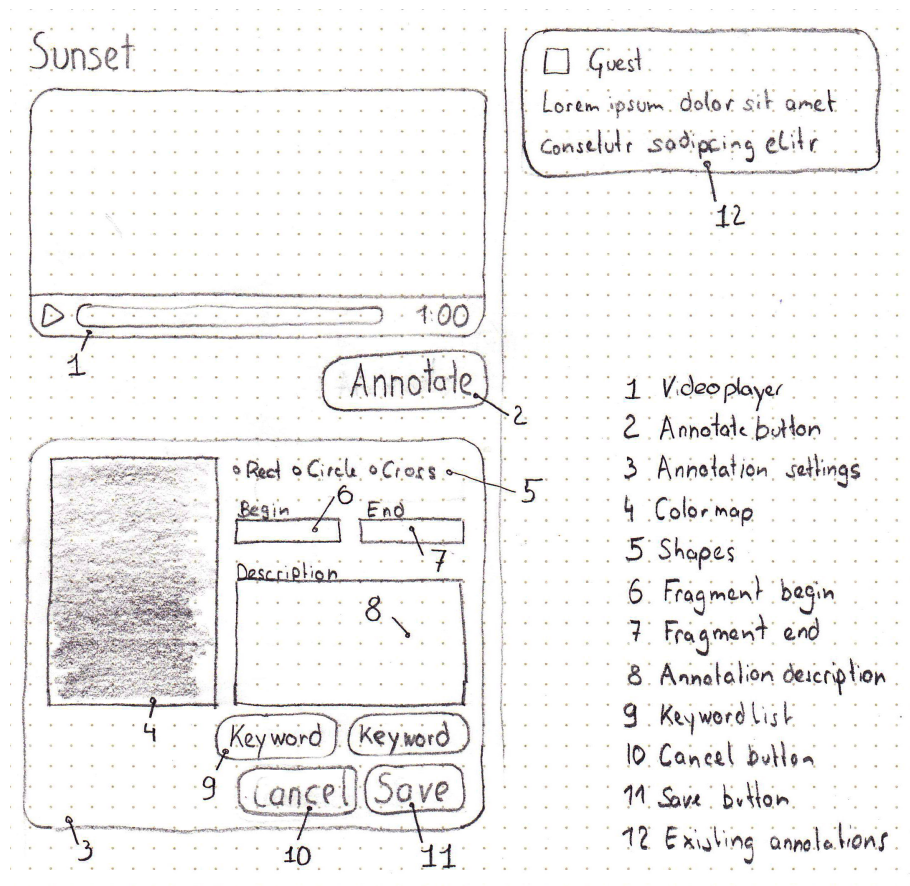 Sunset
1:00
1
Annotate
2
Rect Circle Cross
5
Begin End
6
7
Description
8
4
Keyword Keyword
9
Cancel Save
3
10
11
Guest
Lorem ipsum dolor sit amet
consetutr sadipcing elitr
12
1 Videoplayer
2 Annotate button
3 Annotation settings
4 Colormap
5 Shapes
6 Fragment begin
7 Fragment end
8 Annotation description
9 Keyword list
10 Cancel button
11 Save button
12 Existing annotations